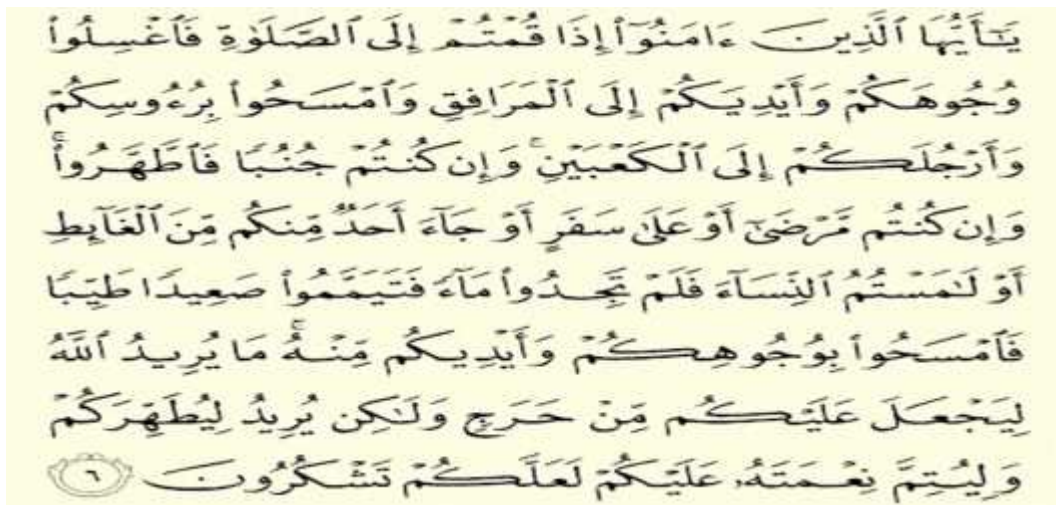 يَٰٓأَيُّهَا ٱلَّذِينَ ءَامَنُوٓا۟ إِذَا قُمۡتُمۡ إِلَى ٱلصَّلَوٰةِ فَٱغۡسِلُوا۟
وُجُوهَكُمۡ وَأَيۡدِيَكُمۡ إِلَى ٱلۡمَرَافِقِ وَٱمۡسَحُوا۟ بِرُءُوسِكُمۡ
وَأَرۡجُلَكُمۡ إِلَى ٱلۡكَعۡبَيۡنِۚ وَإِن كُنتُمۡ جُنُبٗا فَٱطَّهَّرُوا۟ۚ
وَإِن كُنتُم مَّرۡضَىٰٓ أَوۡ عَلَىٰ سَفَرٍ أَوۡ جَآءَ أَحَدٞ مِّنكُم مِّنَ ٱلۡغَآئِطِ
أَوۡ لَٰمَسۡتُمُ ٱلنِّسَآءَ فَلَمۡ تَجِدُوا۟ مَآءٗ فَتَيَمَّمُوا۟ صَعِيدٗا طَيِّبٗا
فَٱمۡسَحُوا۟ بِوُجُوهِكُمۡ وَأَيۡدِيكُم مِّنۡهُۚ مَا يُرِيدُ ٱللَّهُ
لِيَجۡعَلَ عَلَيۡكُم مِّنۡ حَرَجٖ وَلَٰكِن يُرِيدُ لِيُطَهِّرَكُمۡ
وَلِيُتِمَّ نِعۡمَتَهُۥ عَلَيۡكُمۡ لَعَلَّكُمۡ تَشۡكُرُونَ ٦